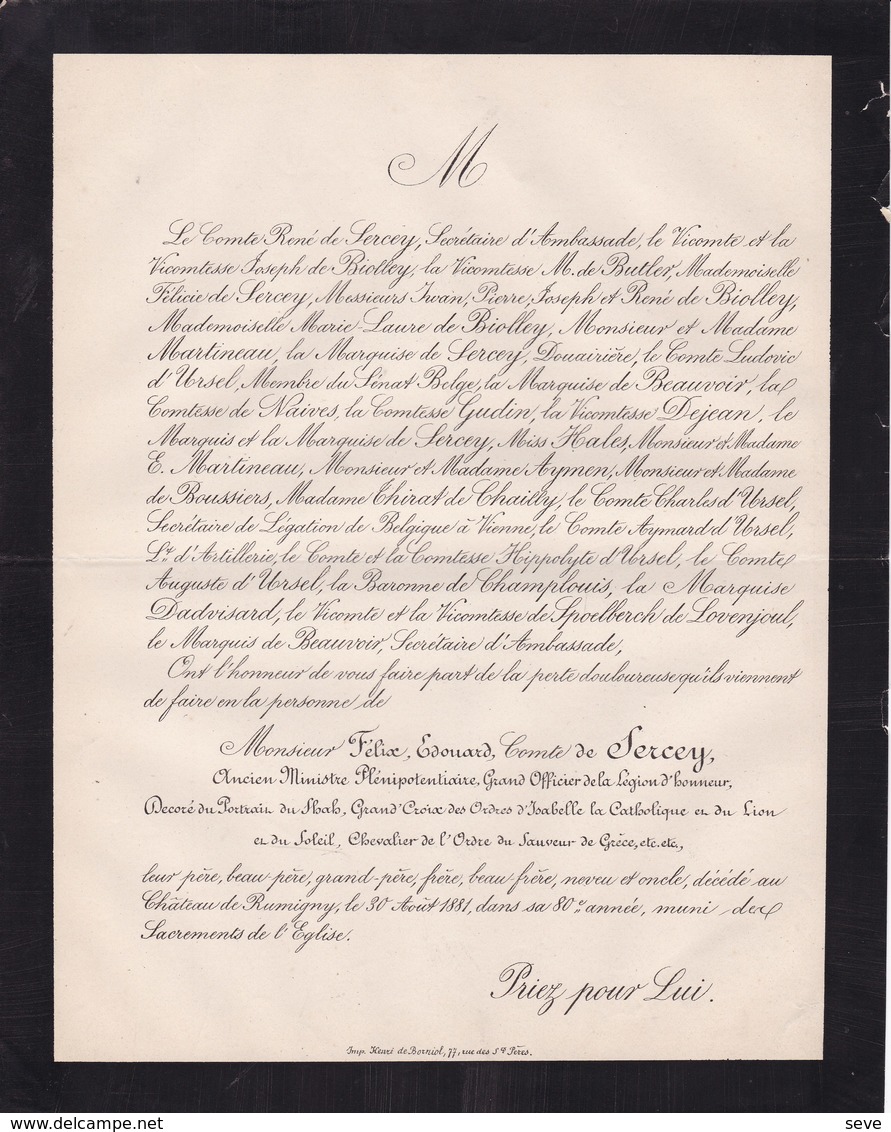 M
Le Comte René de Sercey, Secrétaire d'Ambassade, le Vicomte et la
Vicomtesse Joseph de Biolley, la Vicomtesse M. de Butler, Mademoiselle
Félicie de Sercey, Messieurs Iwan, Pierre, Joseph et René de Biolley,
Mademoiselle Marie-Laure de Biolley, Monsieur et Madame
Martineau, la Marquise de Sercey, Douairière, le Comte Ludovic
d'Ursel, Membre du Sénat Belge, la Marquise de Beauvoir, la
Comtesse de Naives, la Comtesse Gudin, la Vicomtesse Dejean, le
Marquis et la Marquise de Sercey, Miss Hales, Monsieur et Madame
E. Martineau, Monsieur et Madame Aymen, Monsieur et Madame
de Boussiers, Madame Thirat de Chailly, le Comte Charles d'Ursel,
Secrétaire de Légation de Belgique à Vienne, le Comte Aymard d'Ursel,
Lt. d'Artillerie, le Comte et la Comtesse Hippolyte d'Ursel, le Comte
Auguste d'Ursel, la Baronne de Champlouis, la Marquise
Dadvisard, le Vicomte et la Vicomtesse de Spoelberch de Lovenjoul,
le Marquis de Beauvoir, Secrétaire d'Ambassade,
Ont l'honneur de vous faire part de la perte douloureuse qu'ils viennent
de faire en la personne de
Monsieur Félix, Edouard, Comte de Sercey,
Ancien Ministre Plénipotentiaire, Grand Officier de la Légion d'honneur,
Decoré du Portrait du Shah, Grand'Croix des Ordres d'Isabelle la Catholique et du Lion
et du Soleil, Chevalier de l'Ordre du Sauveur de Grèce, etc. etc.,
leur père, beau-père, grand-père, frère, beau-frère, neveu et oncle, décédé au
Château de Rumigny, le 30 Août 1881, dans sa 80e année, muni des
Sacrements de l'Eglise.
Priez pour Lui.
Imp. Henri de Borniol, 77, rue des Sts Pères.
delcampe.net
seve